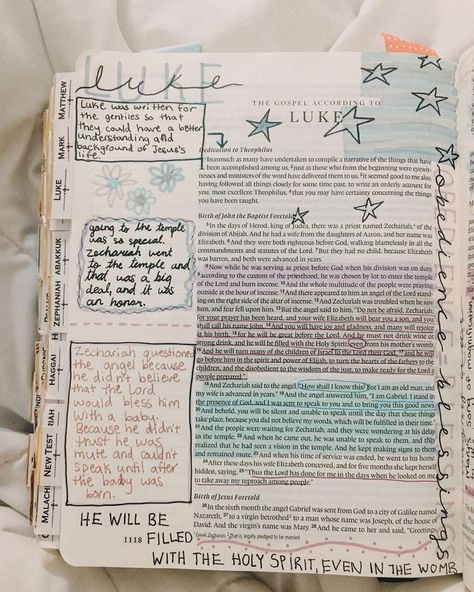 LUKE
luke
Luke was written for
the gentiles so that
they could have a better
understanding and
background of Jesus's
life.
THE GOSPEL ACCORDING TO
LUKE
Dedication to Theophilus
Inasmuch as many have undertaken to compile a narrative of the things that have
been accomplished among us, 2 just as those who from the beginning were eyewitnesses
and ministers of the word have delivered them to us, 3 it seemed good to me also,
having followed all things closely for some time past, to write an orderly account for
you, most excellent Theophilus, 4 that you may have certainty concerning the things
you have been taught.
Birth of John the Baptist Foretold
5 In the days of Herod, king of Judea, there was a priest named Zechariah, of the
division of Abijah. And he had a wife from the daughters of Aaron, and her name was
Elizabeth. 6 And they were both righteous before God, walking blamelessly in all the
commandments and statutes of the Lord. 7 But they had no child, because Elizabeth
was barren, and both were advanced in years.
8 Now while he was serving as priest before God when his division was on duty,
9 according to the custom of the priesthood, he was chosen by lot to enter the temple
of the Lord and burn incense. 10 And the whole multitude of the people were praying
outside at the hour of incense. 11 And there appeared to him an angel of the Lord standing
on the right side of the altar of incense. 12 And Zechariah was troubled when he saw
him, and fear fell upon him. 13 But the angel said to him, "Do not be afraid, Zechariah,
for your prayer has been heard, and your wife Elizabeth will bear you a son, and you
shall call his name John. 14 And you will have joy and gladness, and many will rejoice
at his birth, 15 for he will be great before the Lord. And he must not drink wine or
strong drink, and he will be filled with the Holy Spirit, even from his mother's womb.
16 And he will turn many of the children of Israel to the Lord their God, 17 and he will
go before him in the spirit and power of Elijah, to turn the hearts of the fathers to the
children, and the disobedient to the wisdom of the just, to make ready for the Lord a
people prepared."
18 And Zechariah said to the angel, "How shall I know this? For I am an old man, and
my wife is advanced in years." 19 And the angel answered him, "I am Gabriel. I stand in
the presence of God, and I was sent to speak to you and to bring you this good news.
20 And behold, you will be silent and unable to speak until the day that these things
take place, because you did not believe my words, which will be fulfilled in their time."
21 And the people were waiting for Zechariah, and they were wondering at his delay
in the temple. 22 And when he came out, he was unable to speak to them, and they
realized that he had seen a vision in the temple. And he kept making signs to them
and remained mute. 23 And when his time of service was ended, he went to his home.
24 After these days his wife Elizabeth conceived, and for five months she kept herself
hidden, saying, 25 "Thus the Lord has done for me in the days when he looked on me,
to take away my reproach among people."
Birth of Jesus Foretold
26 In the sixth month the angel Gabriel was sent from God to a city of Galilee named
Nazareth, 27 to a virgin betrothed to a man whose name was Joseph, of the house of
David. And the virgin's name was Mary. 28 And he came to her and said, "Greetings,
Greek Zacharias That is, legally pledged to be married
1118
going to the temple
was so special.
Zechariah went
to the temple and
that was a big
deal, and it was
an honor.
Zechariah questioned
the angel because
he didn't believe
that the Lord
would bless him
with a baby.
Because he didn't
trust he was
mute and couldn't
speak until after
the baby was
born.
HE WILL BE
FILLED
WITH THE HOLY SPIRIT, EVEN IN THE WOMB
obedience → blessings
MATTHEW
MARK
LUKE
ABAKKUK
ZEPHANIAH
HAGGAI
RIAH
NEW TEST
MALACHI